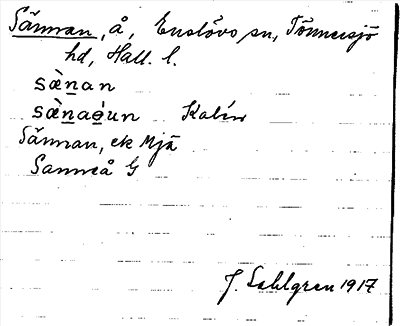 Sännan, å, Enslövs sn, Tönnersjö
hd, Hall. l.
sæ̀nan
sæ̀naɡun Kalén
Sännan, ek Mjä
Sanneå G
J. Sahlgren 1917